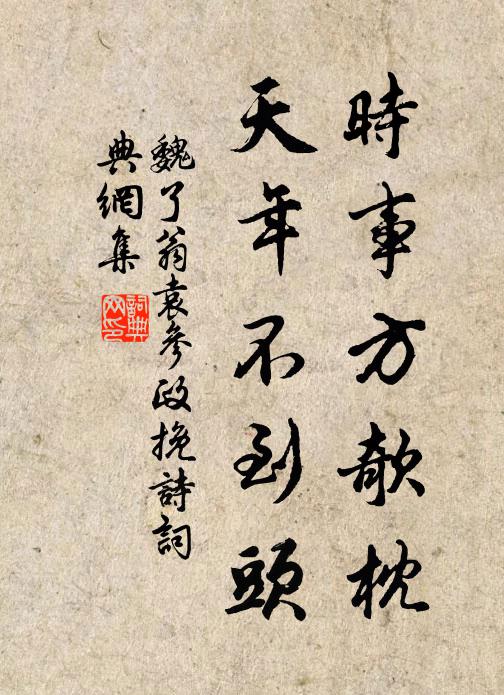 時事方欹枕
天年不到頭
魏了翁袁參政挽詩詞
典網集
詞典網印